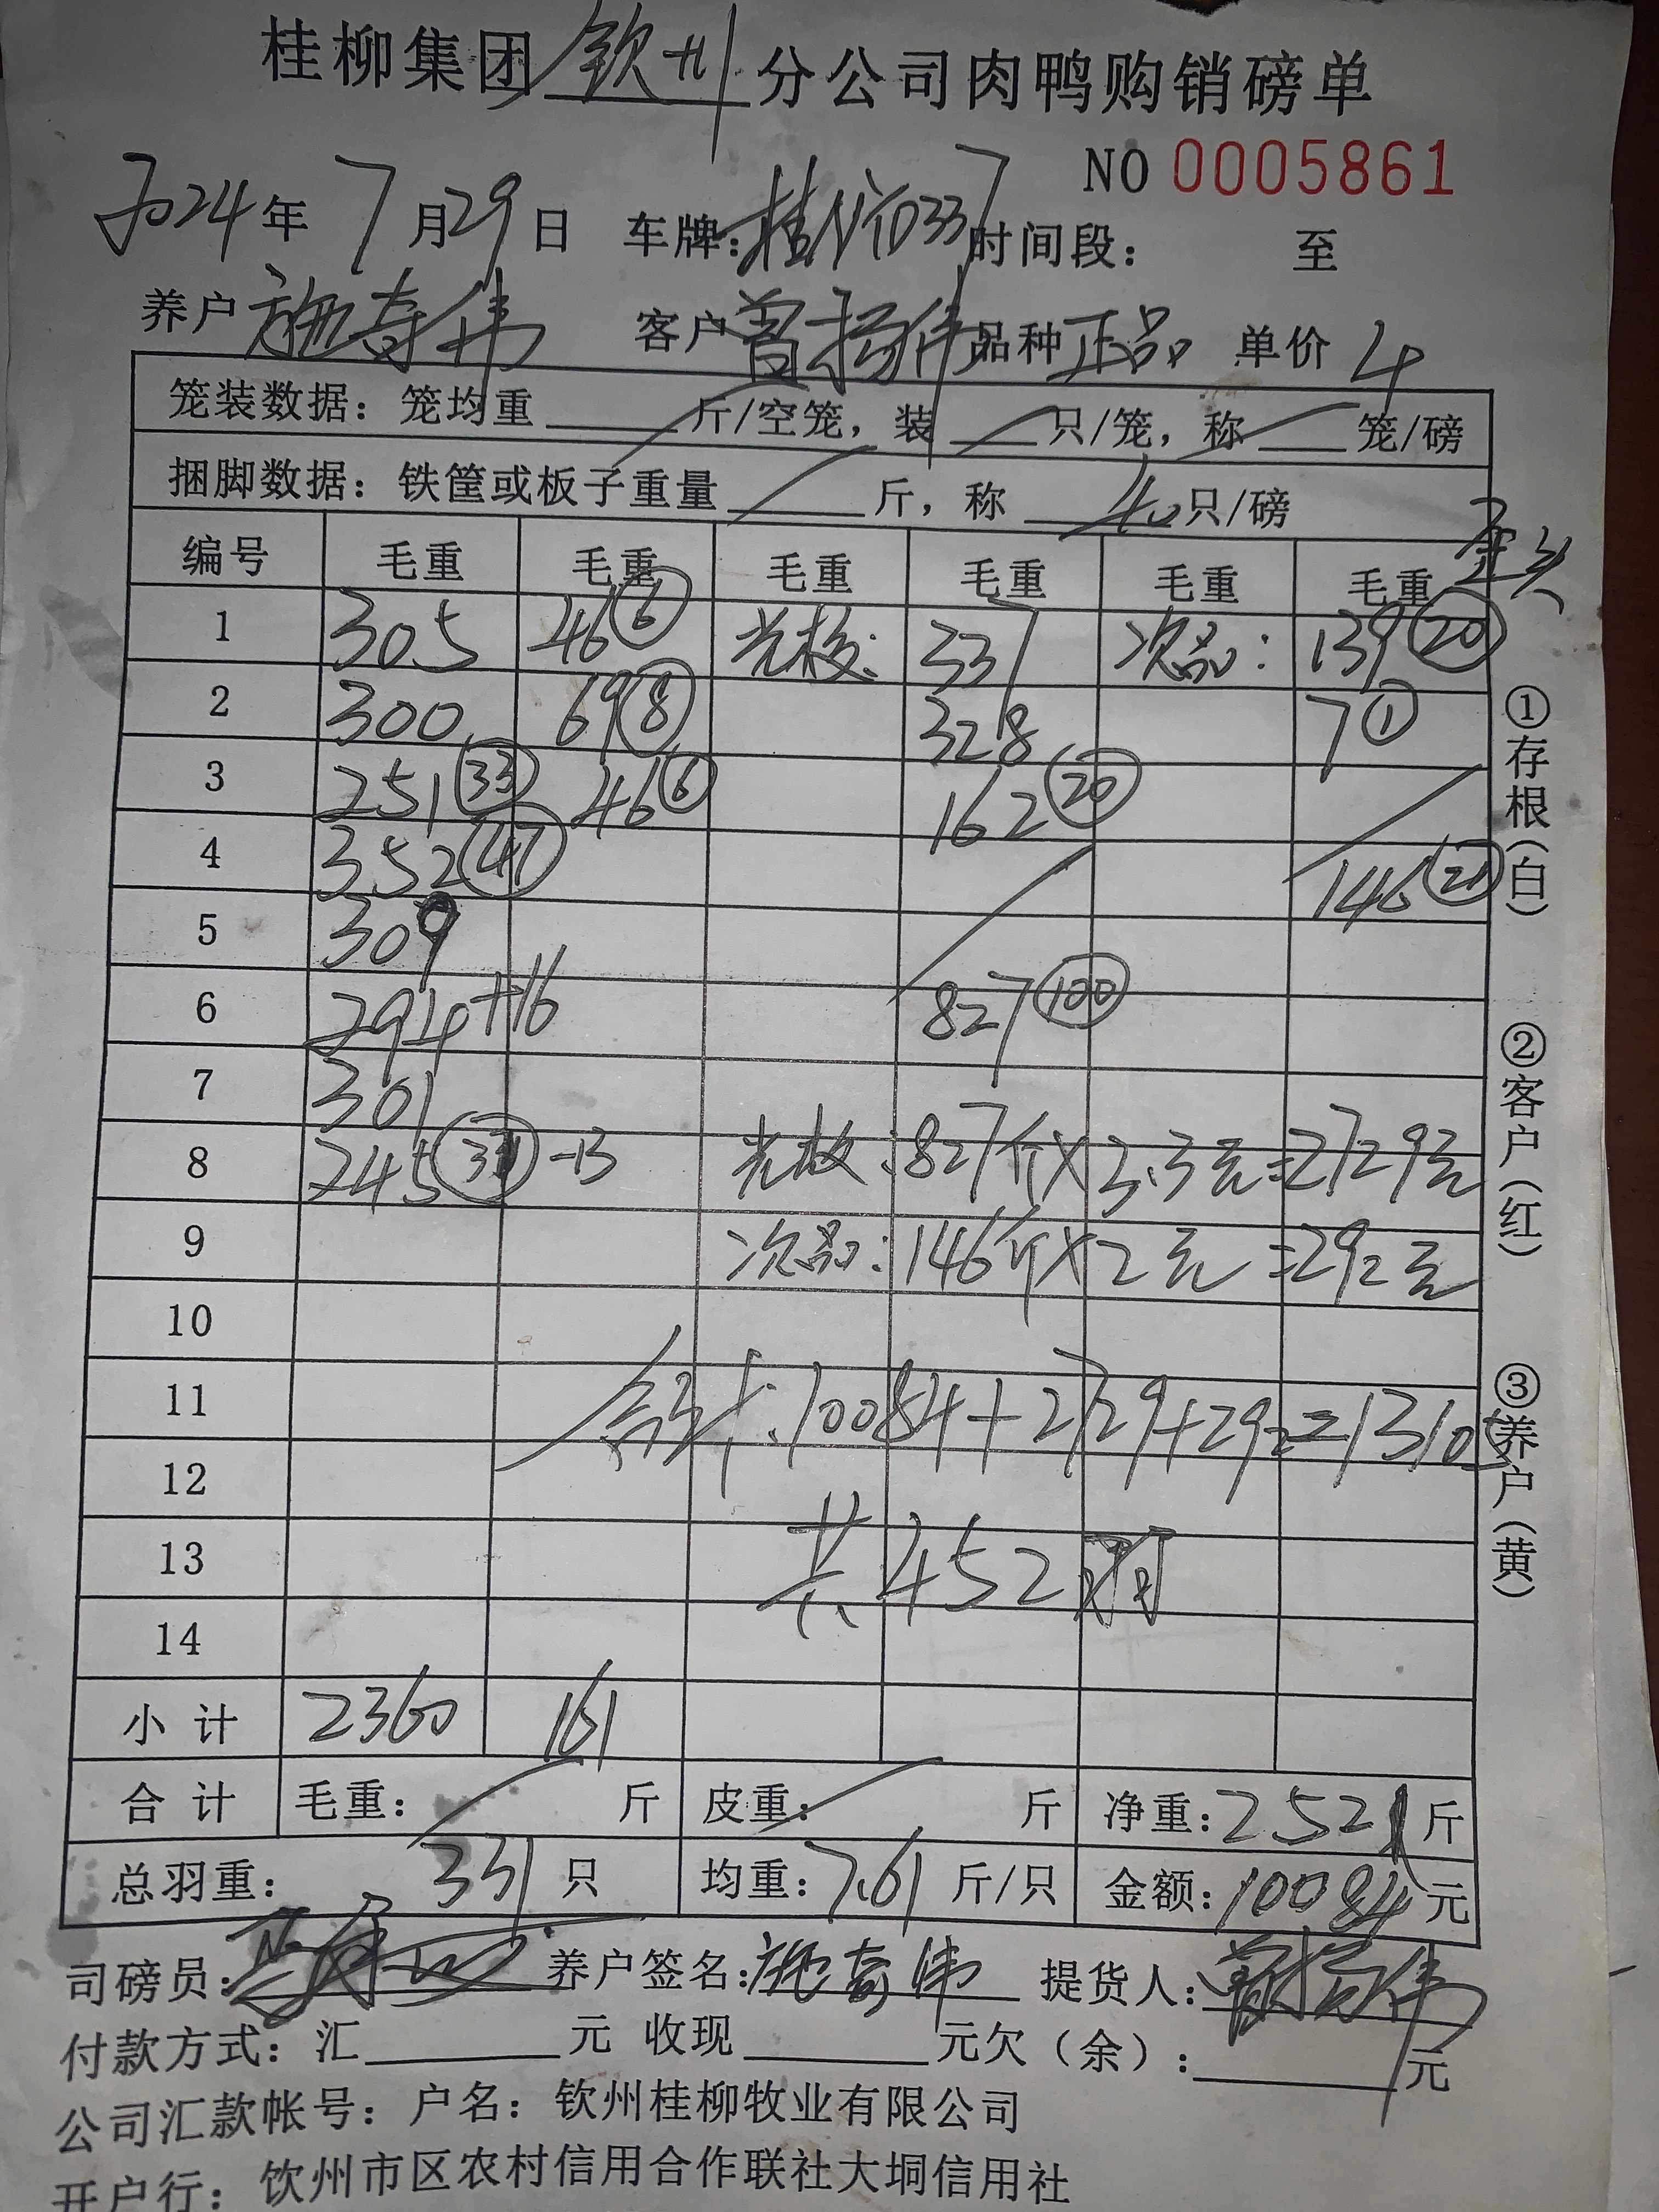 桂柳集团 钦州 分公司肉鸭购销磅单
NO 0005861
2024年 7月29日 车牌: 时间段: 至
养户 施寿伟 客户 曾扬伟 品种 正品 单价 4
笼装数据: 笼均重 斤/空笼, 装 只/笼, 称 笼/磅
捆脚数据: 铁筐或板子重量 斤, 称 40 只/磅
编号 毛重 毛重 毛重 毛重 毛重 毛重
1 305 46⑥ 光板: 337 次品: 139⑳
2 300 69⑧ 328 7①
3 251㉝ 46⑥ 162⑳
4 352㊼ 146㉑
5 309
6 294+16 827(100)
7 301
8 245 -13 光板:827斤×3.3元=2729元
9 次品:146斤×2元=292元
10
11 合计:10084+2729+292=13105
12
13 共452羽
14
小计 2360 161
合计 毛重: 斤 皮重: 斤 净重:2521斤
总羽重: 331 只 均重:7.61 斤/只 金额:10084元
司磅员: 养户签名:施寿伟 提货人:曾扬伟
付款方式: 汇 元 收现 元欠(余): 元
公司汇款帐号: 户名: 钦州桂柳牧业有限公司
开户行: 钦州市区农村信用合作联社大垌信用社
①存根(白)
②客户(红)
③养户(黄)